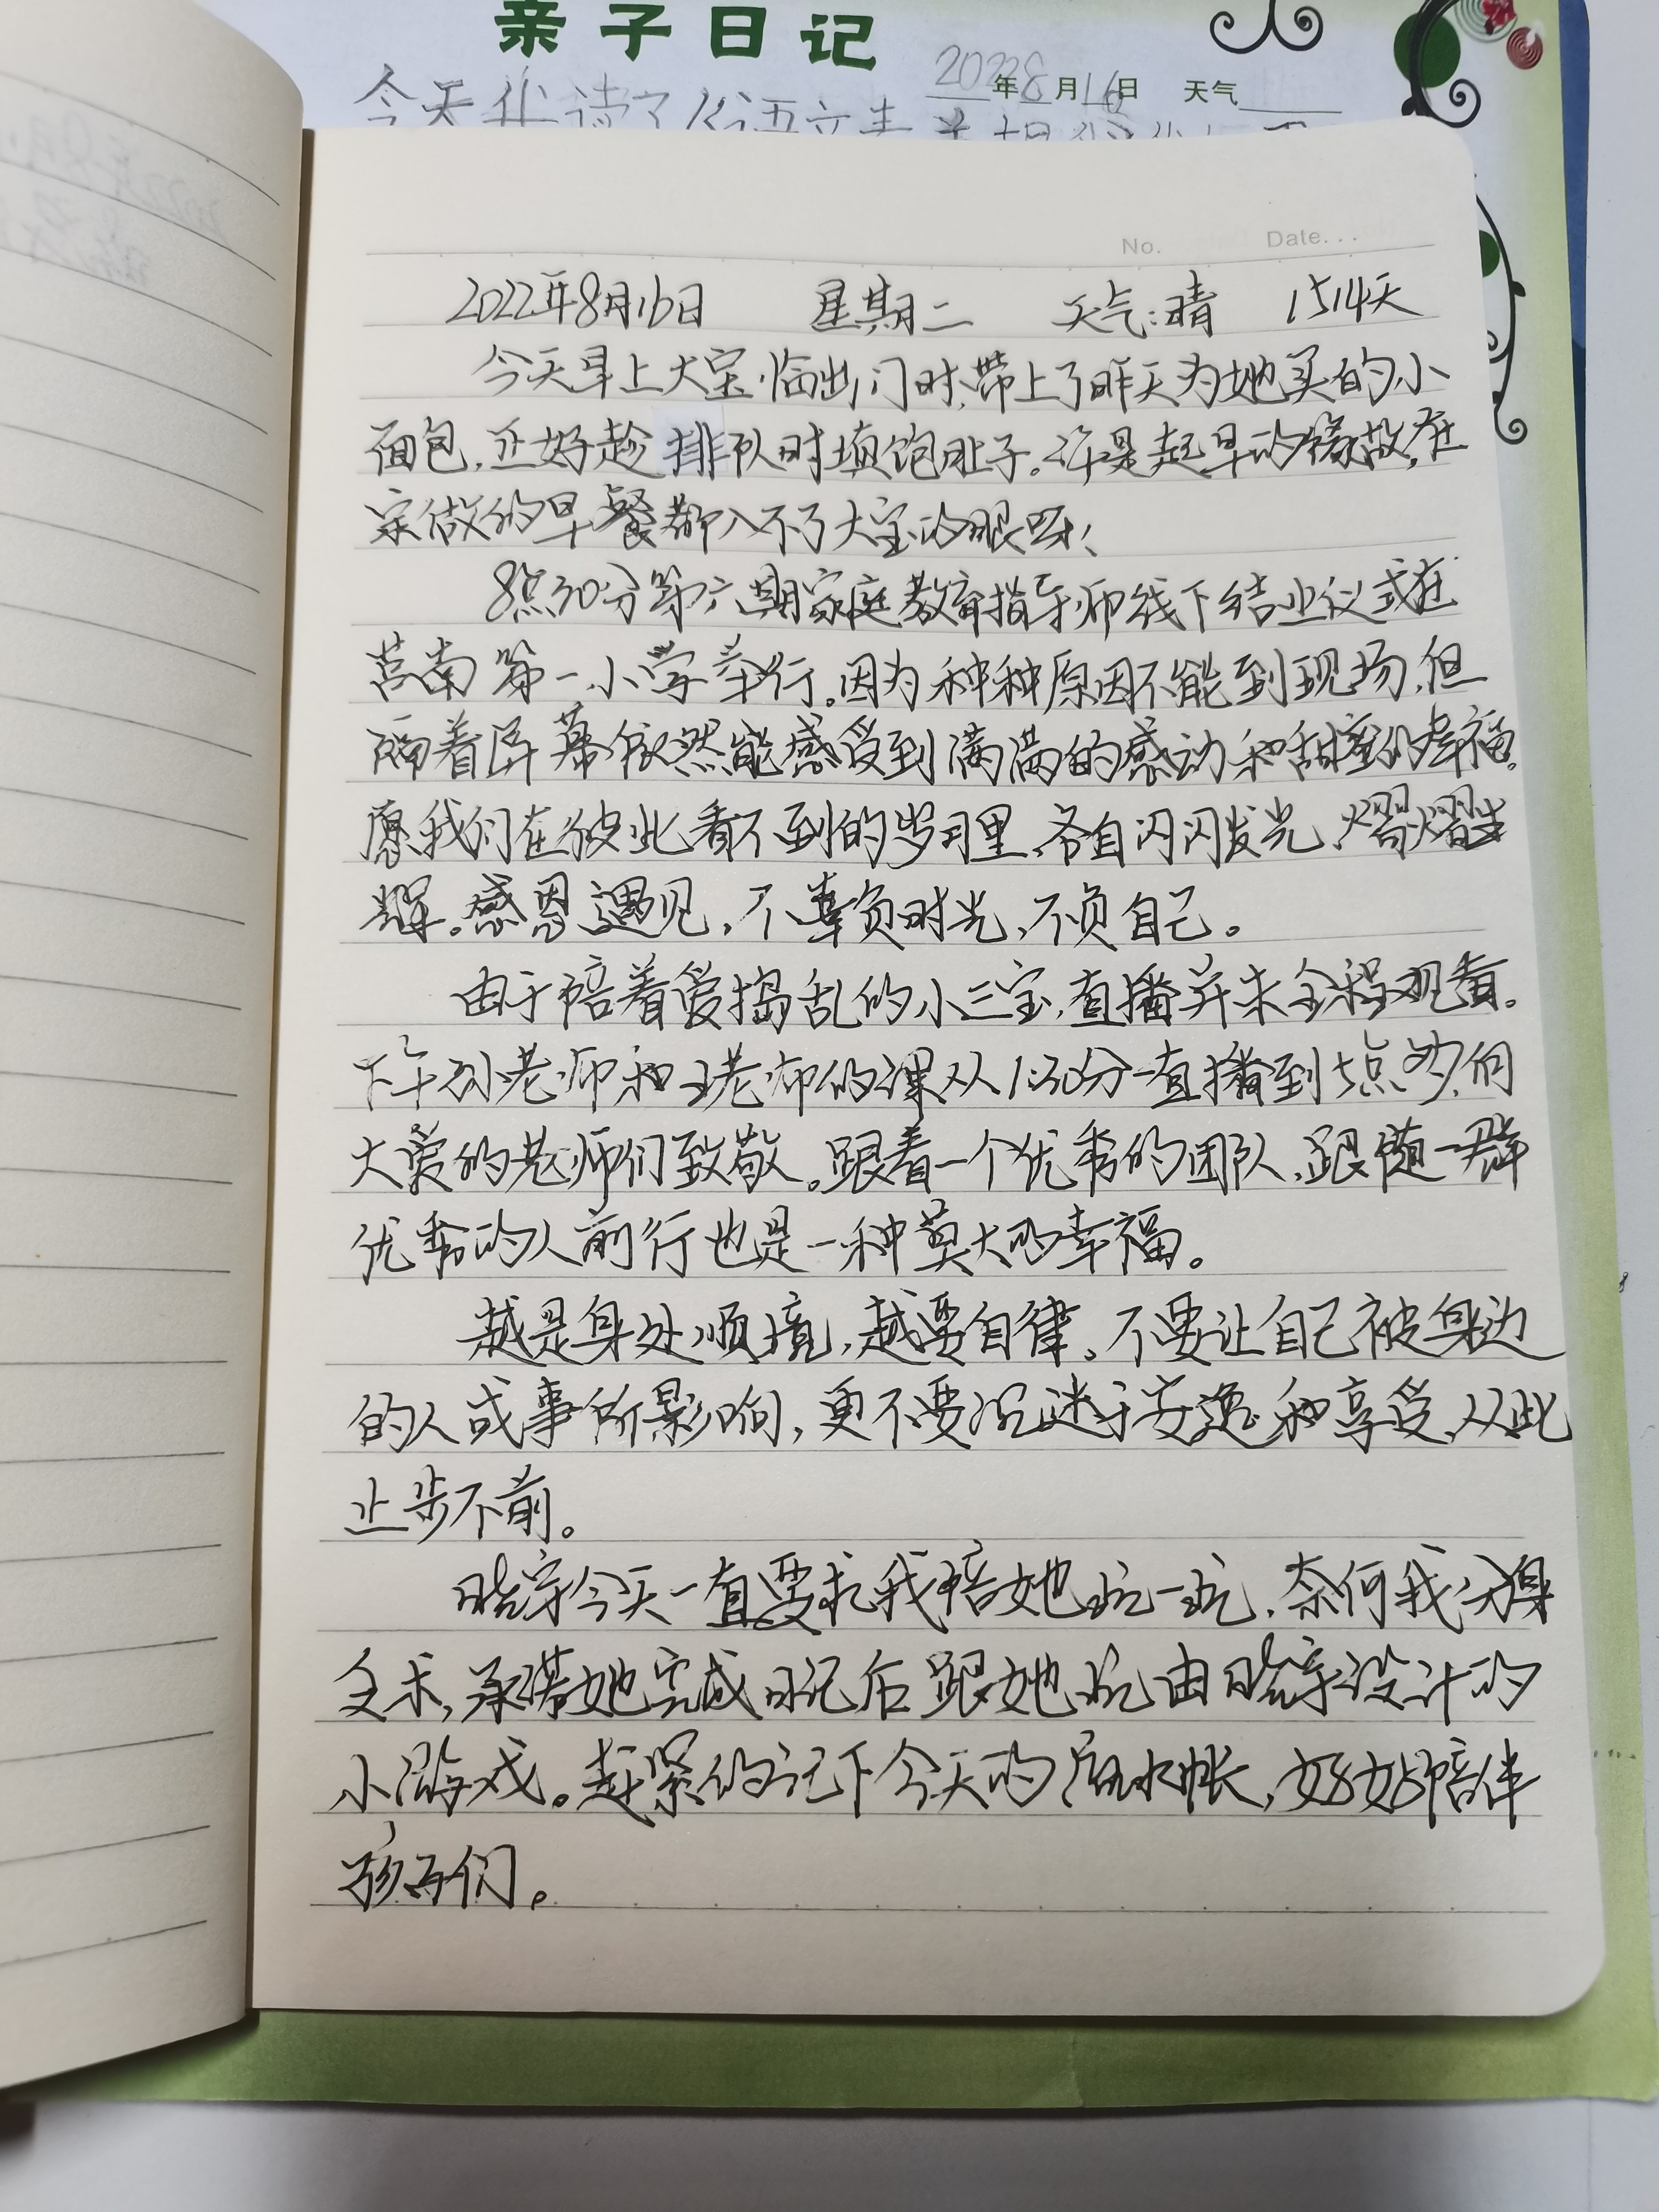 亲子日记
2022年8月16日 天气
今天我读了《语文素养
No. Date...
2022年8月16日 星期二 天气:晴 1514天
今天早上大宝临出门时,带上了昨天为她买的小
面包,正好趁排队时填饱肚子。许是起早的缘故,在
家做的早餐都入不了大宝的眼呀!
8点30分第六期家庭教育指导师线下结业仪式在
莒南第一小学举行。因为种种原因不能到现场,但
隔着屏幕依然能感受到满满的感动和甜蜜的幸福。
愿我们在彼此看不到的岁月里,各自闪闪发光,熠熠生
辉。感恩遇见,不辜负时光,不负自己。
由于陪着爱捣乱的小三宝,直播并未全程观看。
下午孙老师和王老师的课从1:30分一直播到5点多,向
大爱的老师们致敬。跟着一个优秀的团队,跟随一群
优秀的人前行也是一种莫大的幸福。
越是身处顺境,越要自律。不要让自己被身边
的人或事所影响,更不要沉迷于安逸和享受,从此
止步不前。
今天一直要求我陪她玩一玩,奈何我分身
乏术,承诺她完成日记后跟她玩由设计的
小游戏。赶紧的记下今天的流水帐,好好陪伴
孩子们。